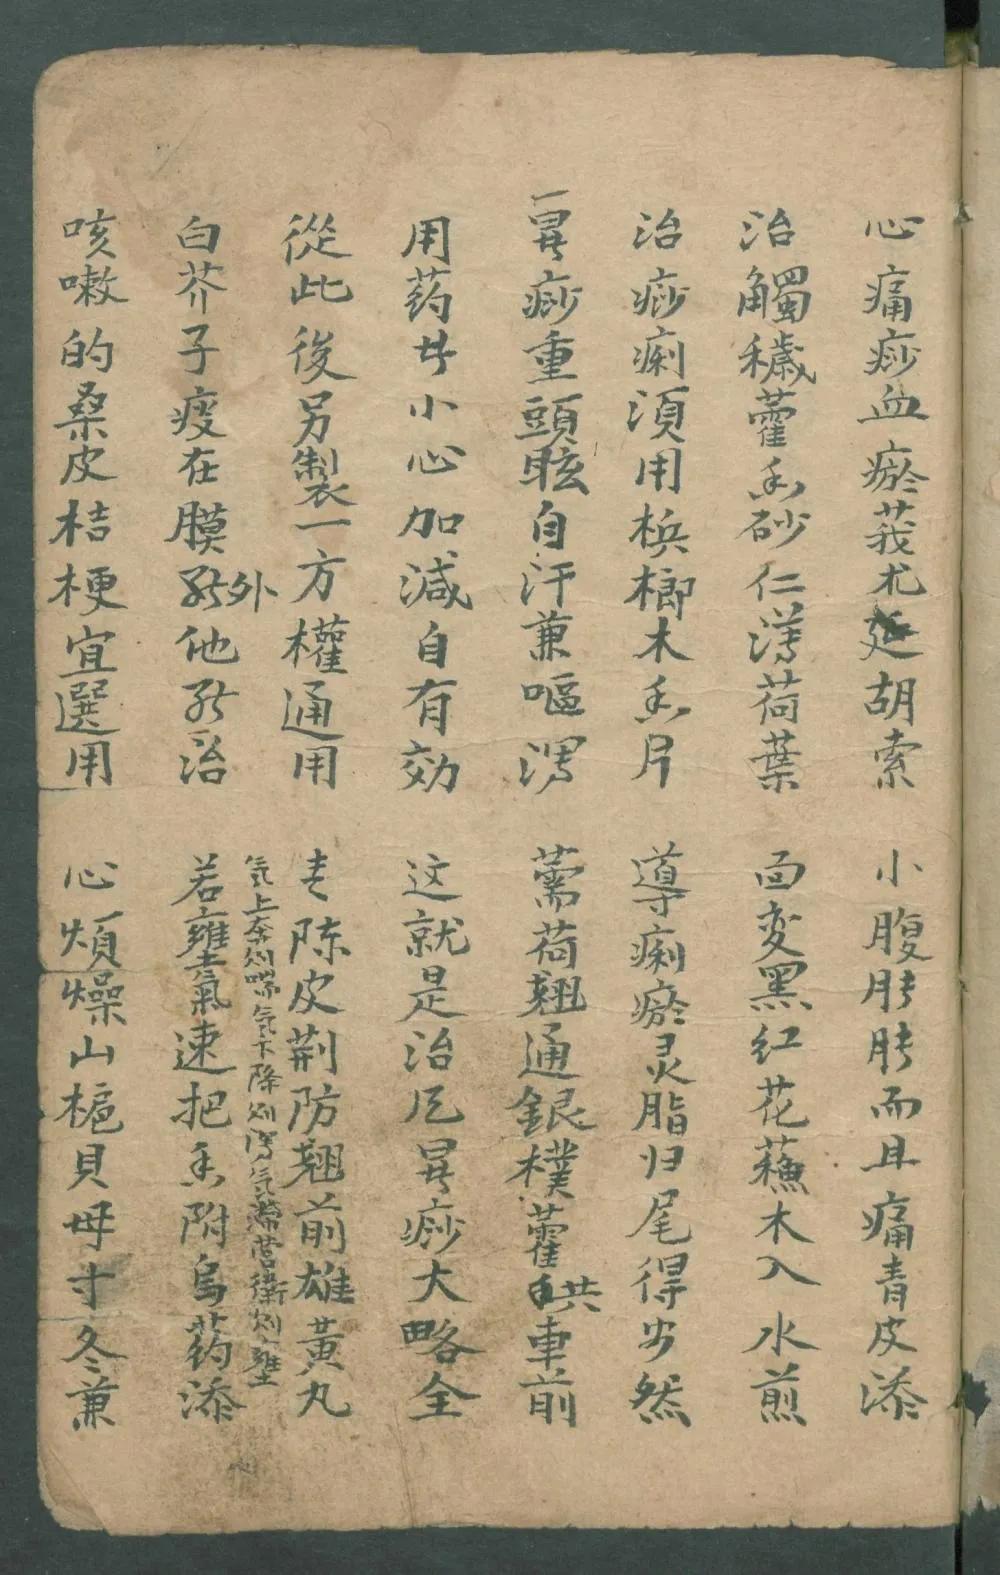 心痛痧血瘀莪朮延胡索 小腹胯胯而且痛青皮添
治觸穢藿香砂仁薄荷葉 面变黑红花蘓木入水煎
治痧痢須用梹榔木香片 導痢瘀灵脂归尾得当然
痧重頭眩自汗兼嘔瀉 薷荷翘通銀樸藿車前
用药小心加減自有効 这就是治痧大略全
從此後另製一方權通用 陈皮荆防翘前雄黃丸
气上奔则喘气下降则瀉气滞营衛则壅
白芥子痰在膜外他治 若壅氣速把香附烏药添
咳嗽的桑皮桔梗宜選用 心煩燥山梔貝母寸冬兼